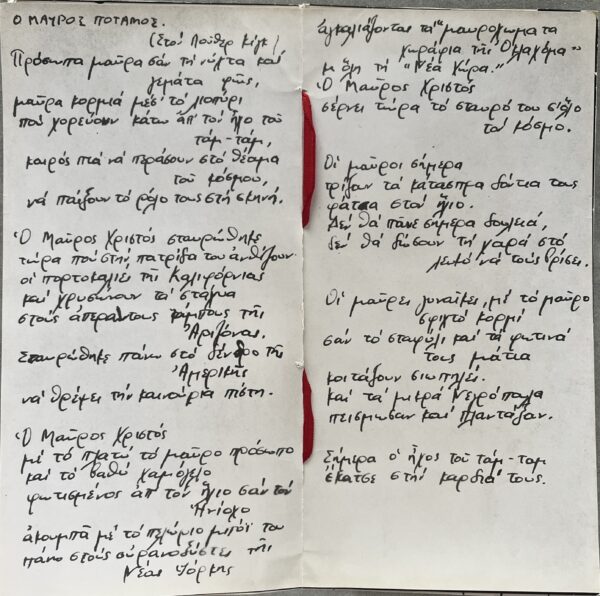 Ο ΜΑΥΡΟΣ ΠΟΤΑΜΟΣ.
(Στόν Λούθερ Κίγκ)
Πρόσωπα μαῦρα σάν τή νύχτα καί
γεμάτα φῶς,
μαῦρα κορμιά μέσ' τό λιοπύρι
πού χορεύουν κάτω ἀπ' τόν ἦχο τοῦ
τάμ-τάμ,
καιρός πιά νά περάσουν στό θέαμα
τοῦ κόσμου,
νά παίξουν τό ρόλο τους στή σκηνή.
Ὁ Μαῦρος Χριστός σταυρώθηκε
τώρα πού στή πατρίδα του ἀνθίζουν
οἱ πορτοκαλιές τῆς Καλιφόρνιας
καί χρυσώνουν τά στάχυα
στούς ἀπέραντους κάμπους τῆς
Ἀριζόνας.
Σταυρώθηκε πάνω στό δένδρο τῆς
Ἀμερικῆς
νά θρέψει τήν καινούρια πίστη.
Ὁ Μαῦρος Χριστός
μέ τό πλατύ τό μαῦρο πρόσωπο
καί τό βαθύ χαμόγελο
φωτισμένος ἀπ' τόν ἥλιο σάν τόν
Ἡνίοχο
ἀκουμπᾶ μέ τό πελώριο μπόϊ του
πάνω στούς οὐρανοξύστες τῆς
Νέας Ὑόρκης
ἀγκαλιάζοντας τά "μαυρόχωματα
χωράφια τῆς Ὀκλαχόμα"
μ' ὅλη τή "Νέα Χώρα."
Ὁ Μαῦρος Χριστός
σέρνει τώρα τό σταυρό του σ' ὅλο
τόν κόσμο.
Οἱ μαῦροι σήμερα
τρίζουν τά κάτασπρα δόντια τους
φάτσα στόν ἥλιο.
Δέν θά πᾶνε σήμερα δουλειά,
δέν θά δώσουν τή χαρά στό
λευκό νά τούς βρίσει.
Οἱ μαῦρες γυναῖκες, μέ τό μαῦρο
σφιχτό κορμί
σάν τό σταφύλι καί τά φωτινά
τους μάτια
κοιτάζουν σιωπηλές.
καί τά μικρά Νεγρόπουλα
πείσμωσαν καί πλάνταξαν.
Σήμερα ὁ ἦχος τοῦ τάμ-ταμ
ἔκατσε στήν καρδιά τους.